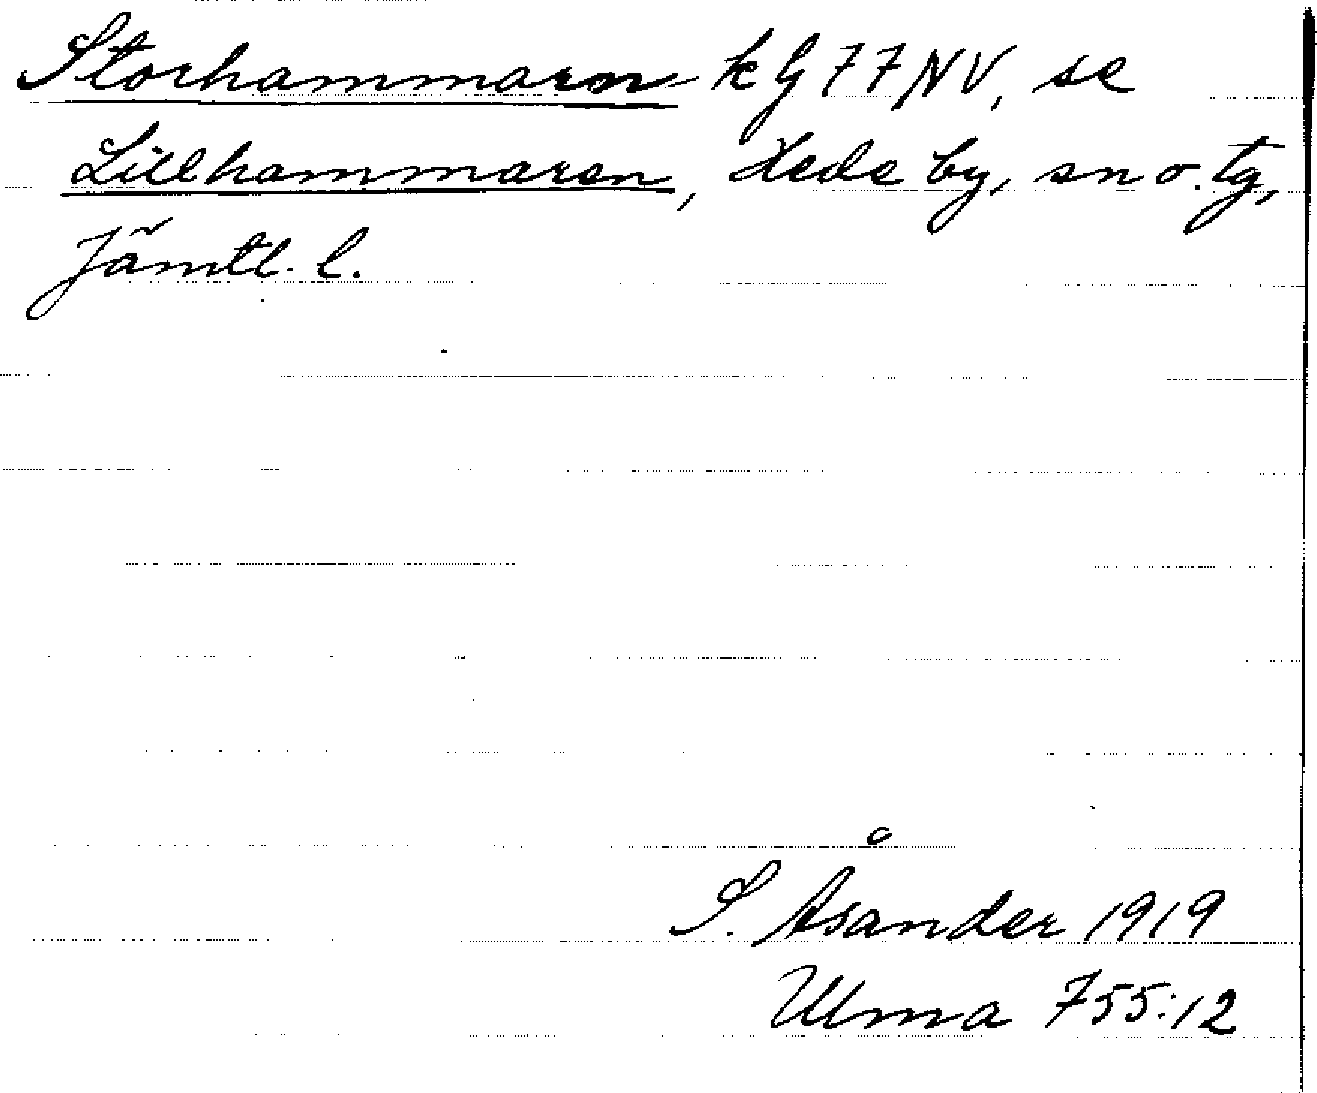 Storhammarn k G 77 NV, se
Lillhammaren, Hede by, sn o. tg,
Jämtl. l.
S. Åsander 1919
Ulma 755:12